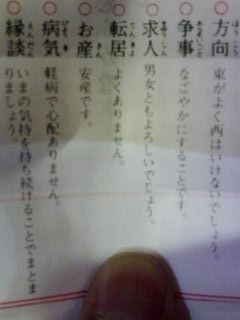 方向 東がよく西はいけないでしょう。
争事 なごやかにすることです。
求人 男女ともよろしいでしょう。
転居 よくありません。
お産 安産です。
病気 軽病で心配ありません。
縁談 いまの気持を持ち続けることでまとま
りましょう。